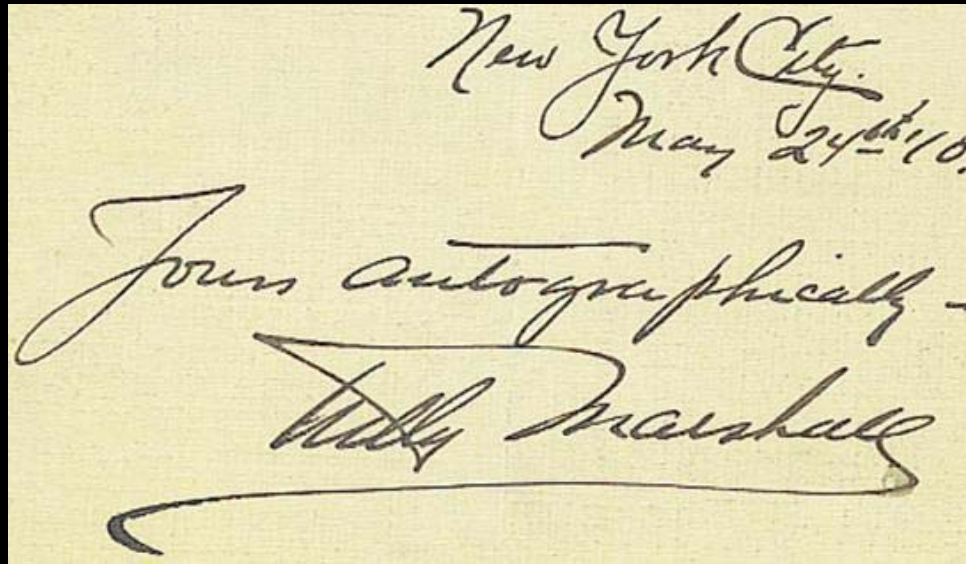 New York City.
May 24th '10.
Yours autographically –
Tully Marshall